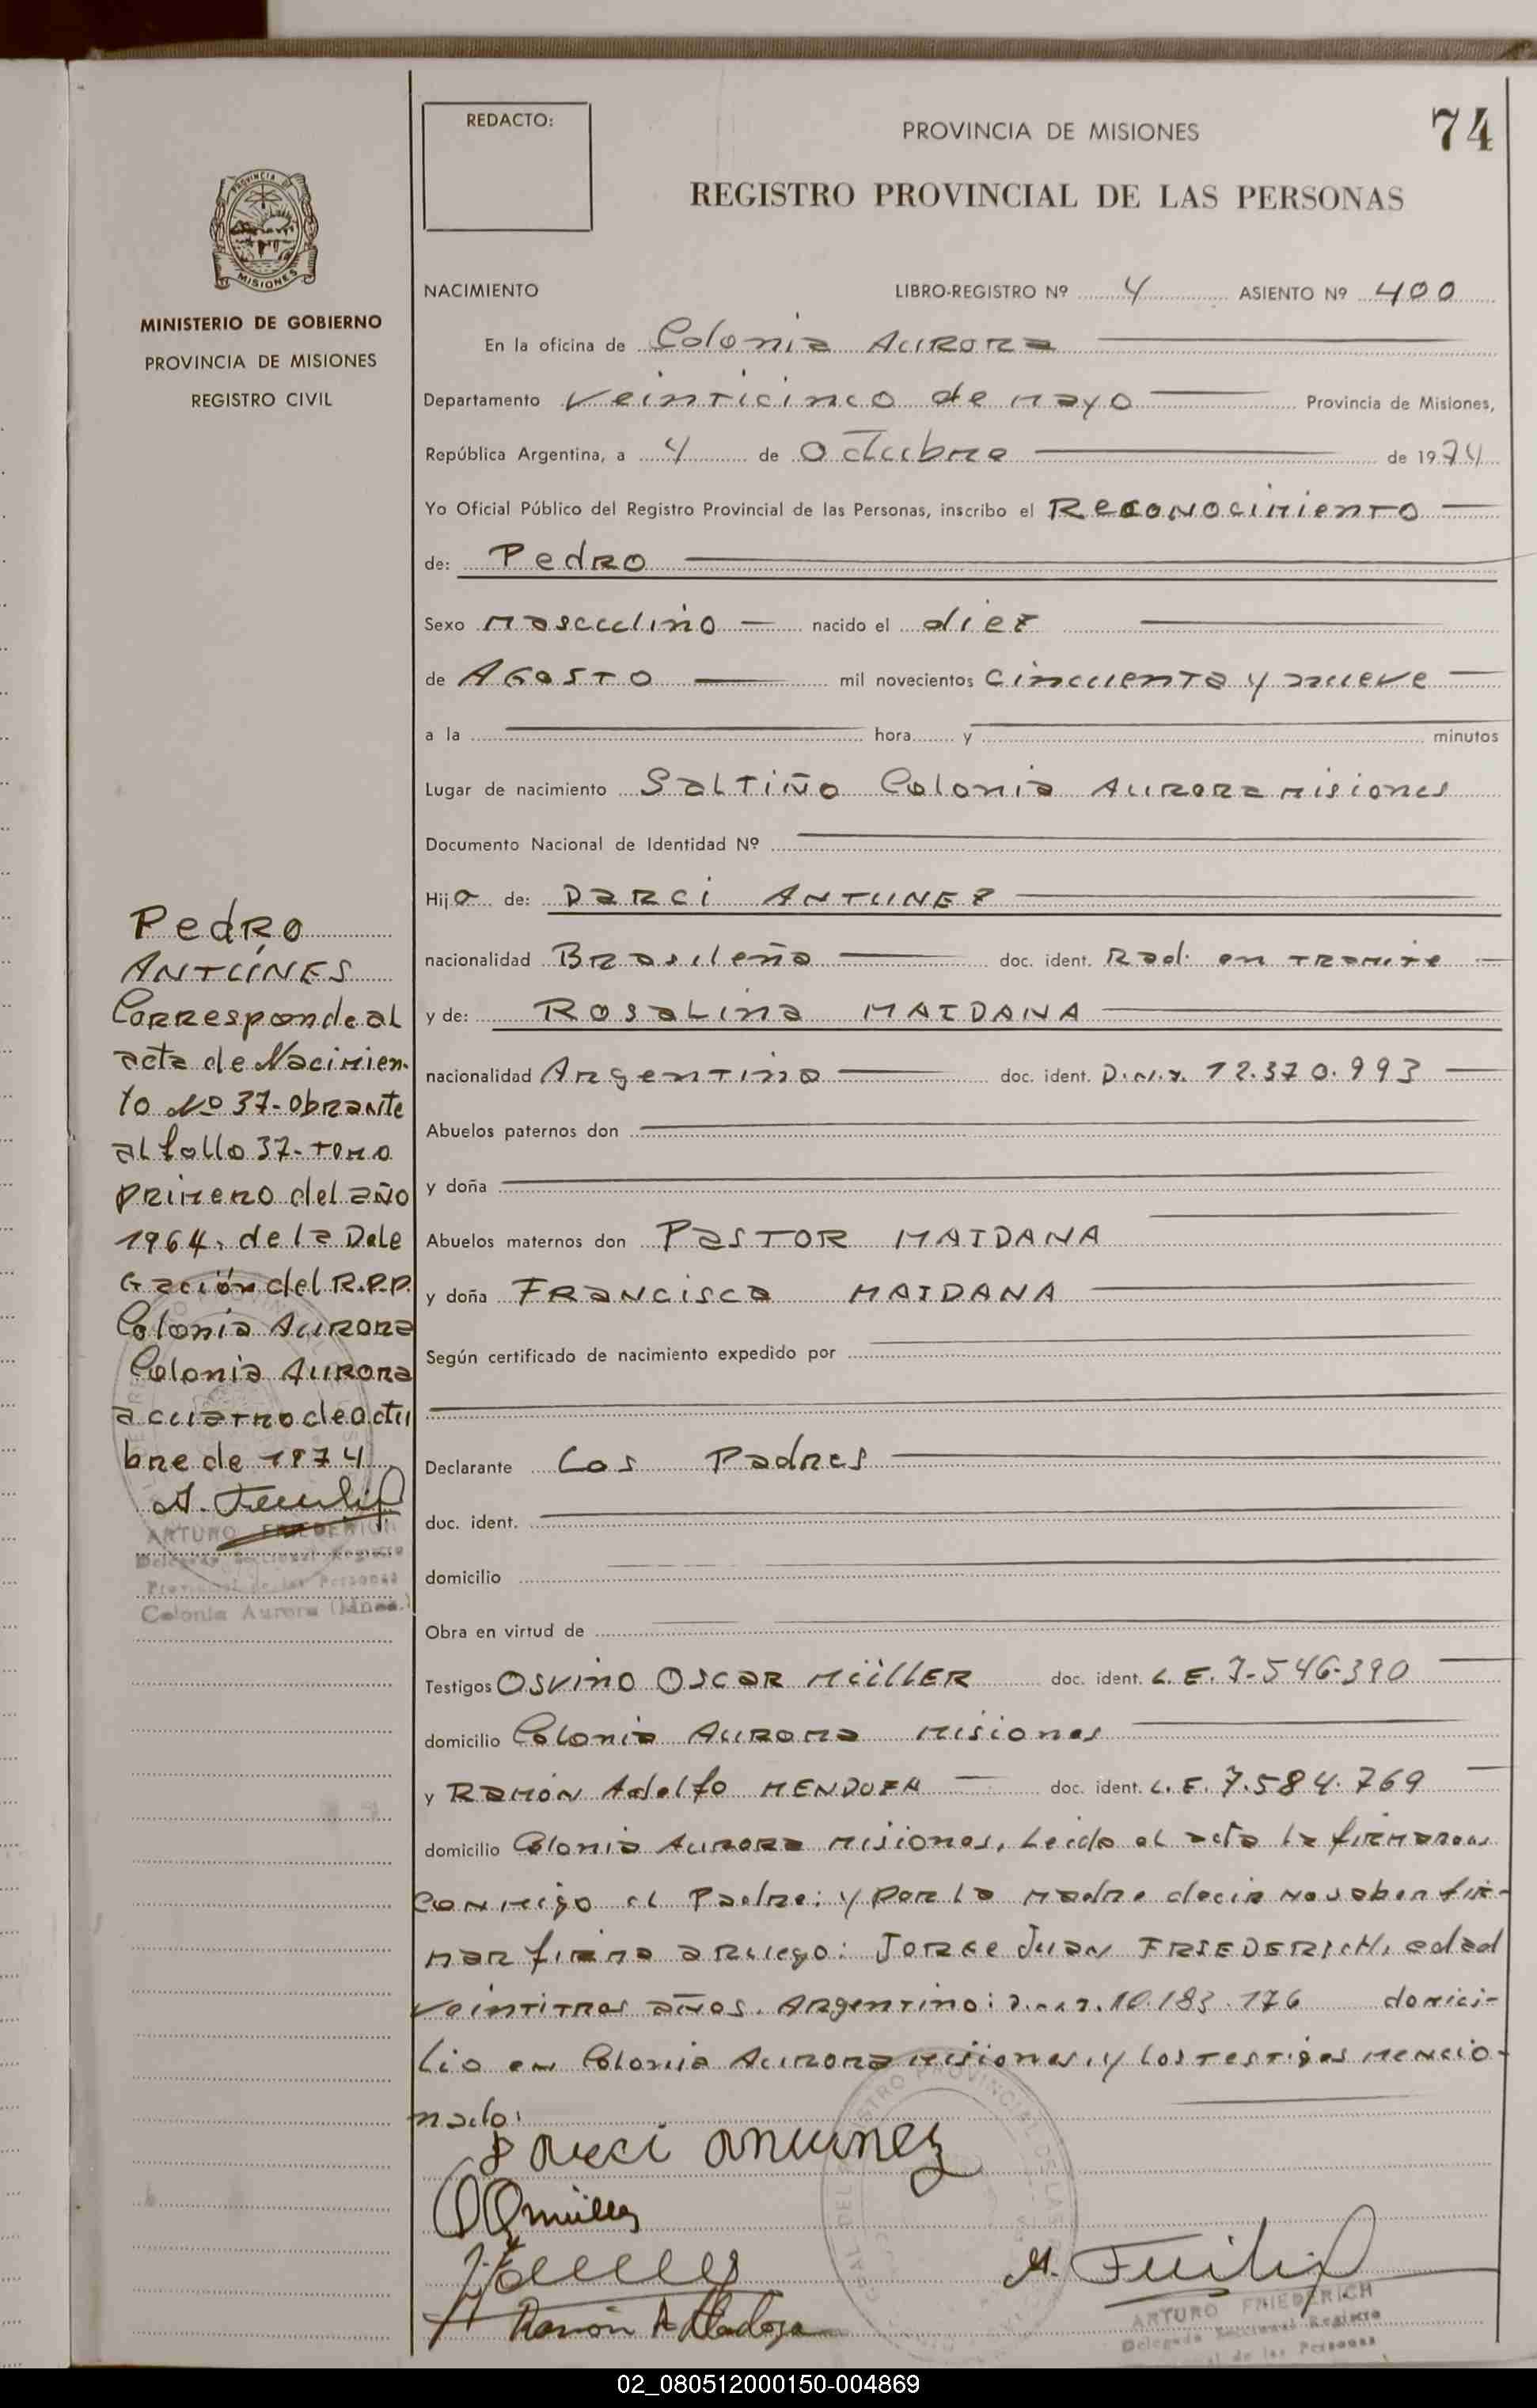 REDACTO:
PROVINCIA DE MISIONES
74
REGISTRO PROVINCIAL DE LAS PERSONAS
PROVINCIA DE
MISIONES
MINISTERIO DE GOBIERNO
PROVINCIA DE MISIONES
REGISTRO CIVIL
NACIMIENTO LIBRO-REGISTRO Nº 4 ASIENTO Nº 400
En la oficina de Colonia Aurora
Departamento veinticinco de mayo Provincia de Misiones,
República Argentina, a 4 de octubre de 1974
Yo Oficial Público del Registro Provincial de las Personas, inscribo el Reconocimiento
de: Pedro
Sexo masculino nacido el diez
de AGOSTO mil novecientos cincuenta y nueve
a la hora y minutos
Lugar de nacimiento Saltiño Colonia Aurora misiones
Documento Nacional de Identidad Nº
Hijo de: Darci ANTUNEZ
nacionalidad Brasileña doc. ident. Rad. en tramite
y de: Rosalina MAIDANA
nacionalidad Argentina doc. ident. D.N.I. 12.370.993
Abuelos paternos don
y doña
Abuelos maternos don PASTOR MAIDANA
y doña Francisca MAIDANA
Según certificado de nacimiento expedido por
Declarante Los Padres
doc. ident.
domicilio
Obra en virtud de
Testigos Osvino Oscar MüllER doc. ident. L.E. 7-546-390
domicilio Colonia Aurora misiones
y Ramón Adolfo MENDOZA doc. ident. L.E. 7.584.769
domicilio Colonia Aurora misiones, Leida el acta la firmaron
conmigo el Padre: y por la madre decir no saber fir-
mar firma a ruego: Jorge Juan FRIEDERICH, edad
veintitres años. Argentino: D.N.I. 10.183.176 domici-
lio en Colonia Aurora misiones, y los testigos mencio-
nado:
Darci Antunez
Ramón A Mendoza
ARTURO FRIEDERICH
Delegado Seccional Registro
de las Personas
Pedro
ANTÚNES
Corresponde al
acta de Nacimien-
to Nº 37-obrante
al follo 37-tomo
primero del año
1964. de la Dele
Gación del R.P.P.
Colonia Aurora
Colonia Aurora
a cuatro de octu
bre de 1974
ARTURO FRIEDERICH
Delegado Seccional Registro
Provincial de las Personas
Colonia Aurora (Mnes.)
02_080512000150-004869